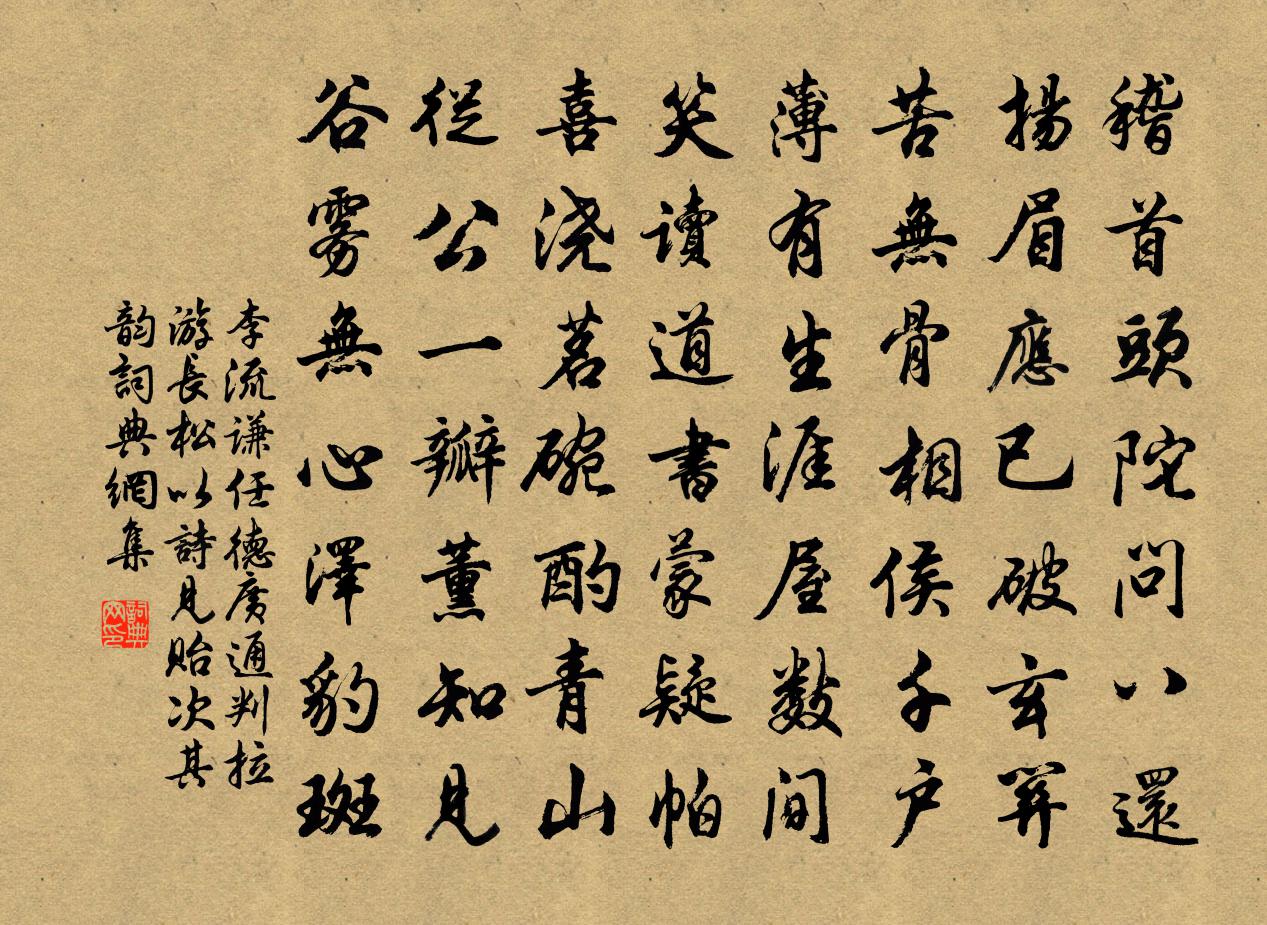 稽首頭陀問八還
揚眉應已破玄關
苦無骨相侯千户
薄有生涯屋数間
笑讀道書蒙疑帕
喜浇茗碗酌青山
從公一瓣薰知見
谷雾無心澤豹斑
李流谦任德广通判拉
游長松以詩見贻次其
韵詞典網集
詞典网印